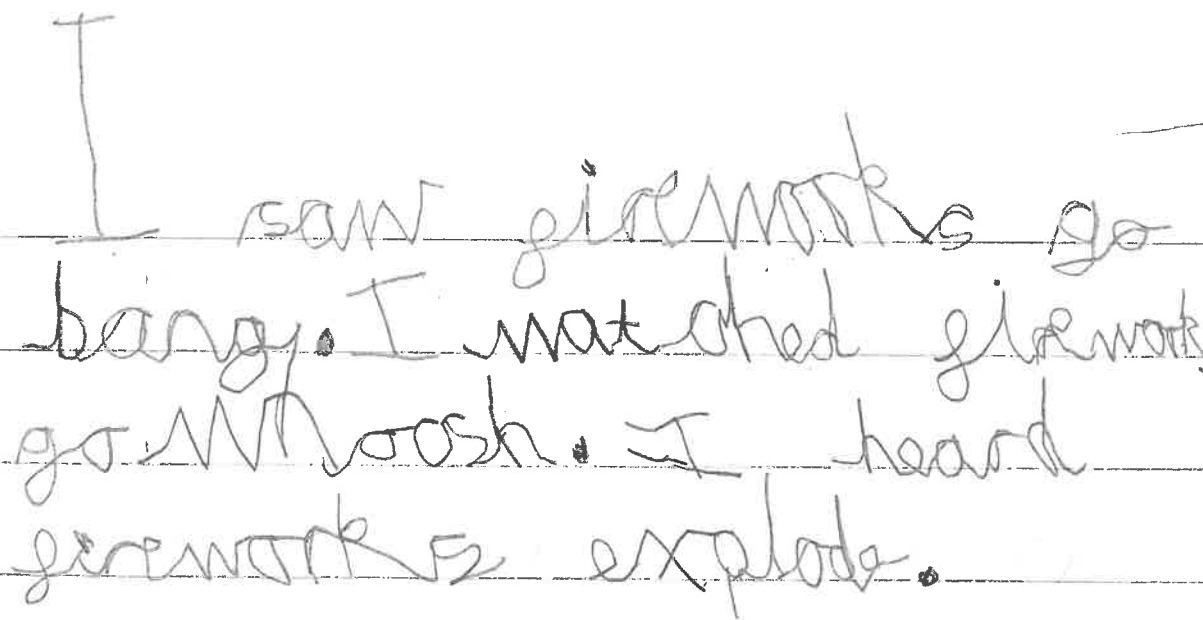 I saw fireworks go
bang. I watched firework
go whoosh. I heard
fireworks explode.